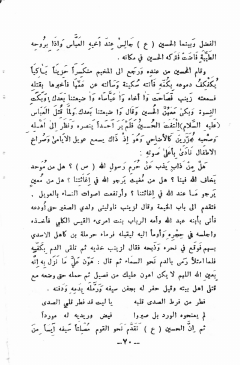 الفضل وبينما الحسين (ع) جالس عند أخيه العباس وإذا بروحه
الطيبة فاضت فتركه في مكانه .
وقام الحسين من عنده ورجع الى المخيم منكسراً حزيناً باكياً
يكفكف دموعه بكمه فأتته سكينة وسألته عن عمها فأخبرها بقتله
فسمعته زينب فصاحت وا أخاه وا عباساه وا ضيعتنا بعدك وبكت
النسوة وبكى الحسين معهن وقال وا ضيعتنا بعدك ولما قتل العباس
(عليه السلام) التفت الحسين فلم ير أحداً ينصره ونظر الى أهله
وصحبه مجزرين كالأضاحي وهو إذ ذاك يسمع عويل الأيامى وصراخ
الأطفال نادى بأعلى صوته :
هل من ذاب يذب عن حرم رسول الله (ص) ؟ هل من موحد
يخاف الله فينا ؟ هل من مغيث يرجو الله في إغاثتنا ؟ هل من معين
يرجو ما عند الله في إغاثتنا ؟ وارتفعت أصوات النساء بالعويل .
فتقدم الى باب الخيمة وقال لزينب ناوليني ولدي الصغير حتى أودعه
فأتى بابنه عبد الله وأمه الرباب بنت امرىء القيس الكلبي فأخذه
وأجلسه في حجره وأومأ اليه ليقبله فرماه حرملة بن كاهل الأسدي
بسهم فوقع في نحره فذبحه فقال لزينب خذيه ثم تلقى الدم بكفيه
فلما امتلأتا رمى بالدم نحو السماء ثم قال : هون علي ما نزل به إنه
بعين الله اللهم لا يكن أهون عليك من فصيل ثم حمله حتى وضعه مع
قتلى أهل بيته وقيل حفر له بجفن سيفه ورمله بدمه ودفنه .
فطر من فرط الصدى قلبه   يا ليت قد فطر قلبي الصدى
لم يمنحوه الورد بل صيروا   فيض وريديه له موردا
ثم إن الحسين (ع) تقدم نحو القوم مصلتاً سيفه آيساً من
- ٧٠ -